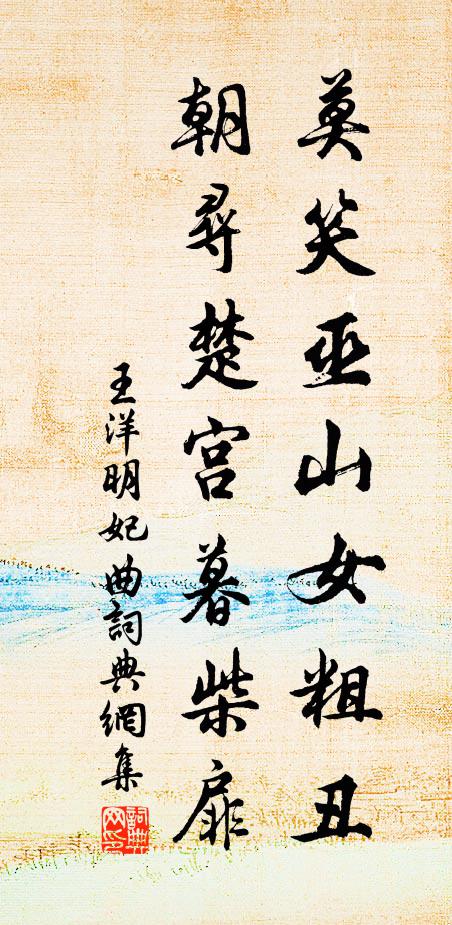 莫笑巫山女粗丑
朝寻楚宫暮柴扉
王洋明妃曲詞典網集
詞典网印